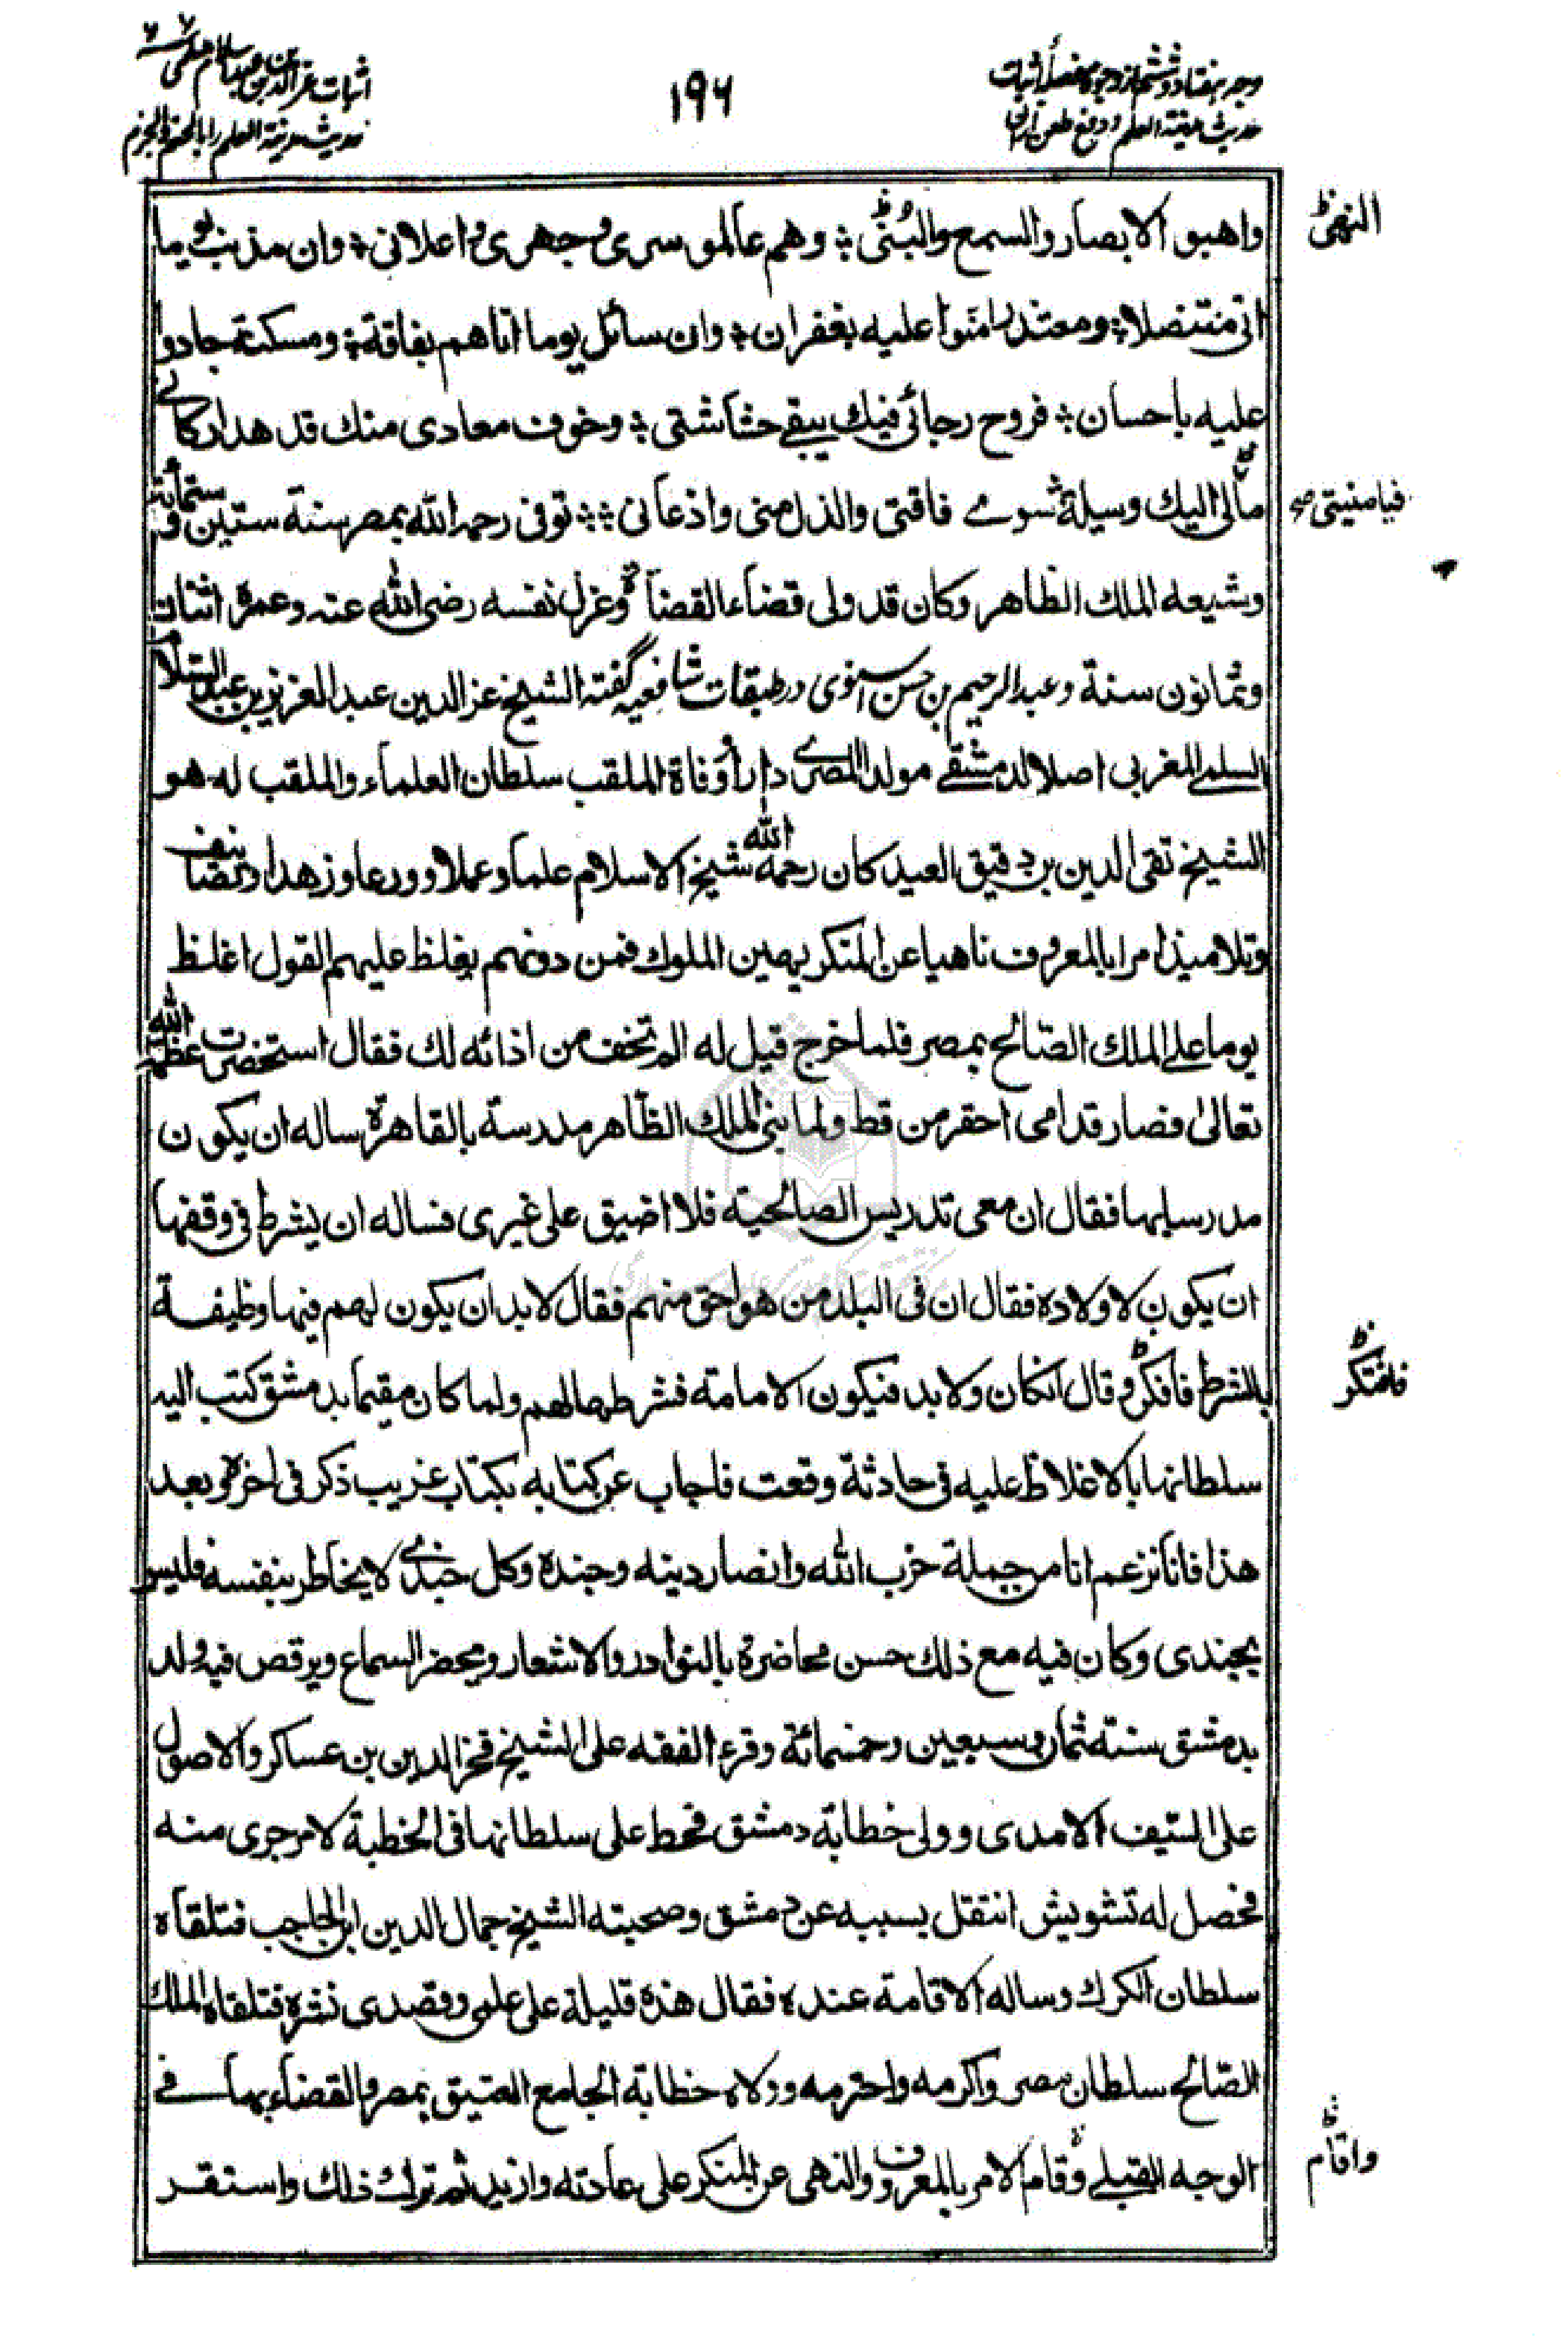 وجه هفتاد و ششم از وجوه مفصله اثبات
حديث مدينة العلم و دفع طعن
١٩٦
اثبات عز الدين بن عبد السلام سلمى
حديث مدينة العلم را بالحتم و الجزم
واهبو الابصار والسمع والبُنى ؞ وهم عالمو سرى وجهرى واعلانى ؞ وان مذنب يوما
النهىٰ
اتى متنصلا ؞ ومعتذرا منوا عليه بغفران ؞ وان سائل يوما اتاهم بفاقة ؞ ومسكنة جادوا
عليه باحسان ؞ فروح رجائى فيك يبقى حشاشتى ؞ وخوف معادى منك قد هد اركانے
مالى اليك وسيلة سوے فاقتى والذل منى واذعانى ؞؞ توفى رحمه الله بمصر سنة ستين وستمائة
فيا منيتى
وشيعه الملك الظاهر وكان قد ولى قضاء القضاة وعزل نفسه رضى الله عنه وعمره اثنتان
وثمانون سنة وعبد الرحيم بن حسن اسنوى در طبقات شافعيه گفته الشيخ عز الدين عبد العزيز بن عبد السلام
السلمے المغربى اصلا الدمشقے مولدا المصرے دارا ووفاة الملقب سلطان العلماء والملقب له هو
الشيخ تقى الدين بن دقيق العيد كان رحمه الله شيخ الاسلام علما وعملا وورعا وزهدا وتصانيف
وتلاميذ امرا بالمعروف ناهيا عن المنكر يهين الملوك فمن دونهم يغلظ عليهم القول اغلظ
يوما على الملك الصالح بمصر فلما خرج قيل له الم تخف من اذائه لك فقال استحضرت عظمة الله
تعالىٰ فصار قدامى احقر من قط ولما بنى الملك الظاهر مدرسة بالقاهرة ساله ان يكون
مدرسا بها فقال ان معى تدريس الصالحية فلا اضيق على غيرى فساله ان يشرط فى وقفها
ان يكون لاولاده فقال ان فى البلد من هو احق منهم فقال لا بد ان يكون لهم فيها وظيفة
بالشرط فافكر وقال انكان ولا بد فيكون الامامة فشرطها لهم ولما كان مقيما بدمشق كتب اليه
فافتكر
سلطانها بالاغلاظ عليه فى حادثة وقعت فاجاب عن كتابه بكتاب غريب ذكر فى اخره وبعد
هذا فانا نزعم انا من جملة حزب الله وانصار دينه وجنده وكل جندے لا يخاطر بنفسه فليس
بجندى وكان فيه مع ذلك حسن محاضرة بالنوادر والاشعار ويحضر السماع ويرقص فيه ولد
بدمشق سنة ثمان وسبعين وخمسمائة وقرء الفقه على الشيخ فخر الدين بن عساكر والاصول
على السيف الامدى وولى خطابة دمشق فحط على سلطانها فى الخطبة لامر جرى منه
فحصل له تشويش انتقل بسببه عن دمشق وصحبته الشيخ جمال الدين ابن الحاجب فتلقاه
سلطان الكرك وساله الاقامة عنده فقال هذه قليلة على علمى وقصدى نشره فتلقاه الملك
الصالح سلطان مصر واكرمه واحترمه وولاه خطابة الجامع العتيق بمصر والقضاء بها فے
الوجه القبلے وقام الامر بالمعروف والنهى عن المنكر على عادته وازيد ثم ترك ذلك واستقر
واقام